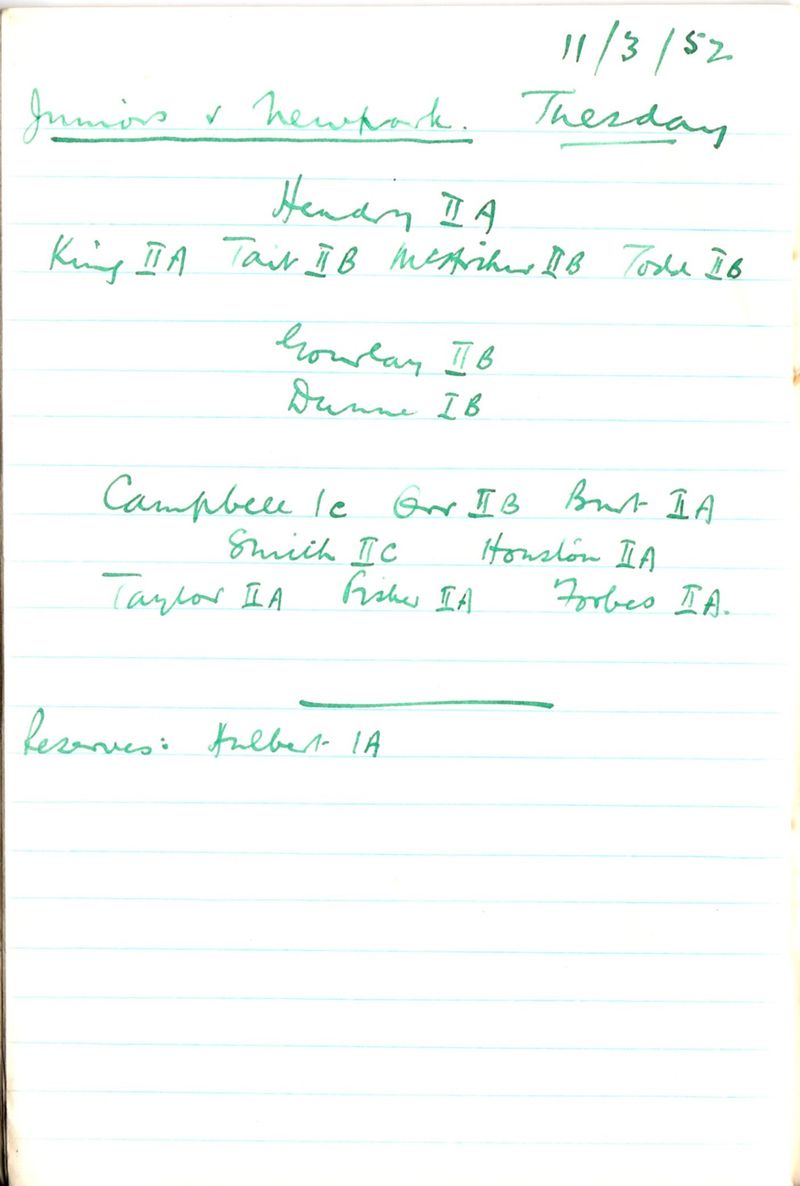 11/3/52
Juniors v Newpark. Tuesday
Hendry II A
King II A Tait II B McArthur II B Todd II B
Gourlay II B
Dunne I B
Campbell 1c Orr II B Burt II A
Smith II C Houston II A
Taylor II A Fisher II A Forbes II A.
Reserves: Hulbert 1A